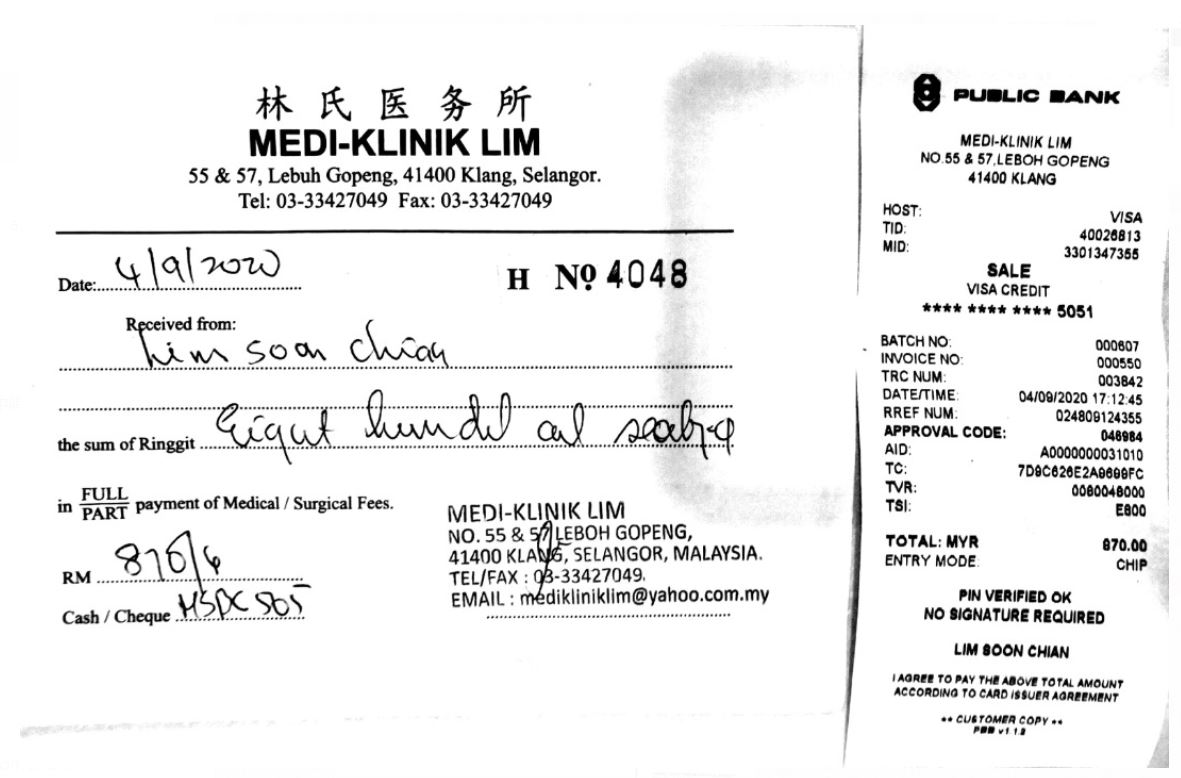 林氏医务所
MEDI-KLINIK LIM
55 & 57, Lebuh Gopeng, 41400 Klang, Selangor.
Tel: 03-33427049 Fax: 03-33427049
Date: 4/9/2020
H Nº 4048
Received from:
Lim soon chian
the sum of Ringgit Eight hundred and seventy
in FULL PART payment of Medical / Surgical Fees.
RM 870/
Cash / Cheque
MEDI-KLINIK LIM
NO. 55 & 57, LEBOH GOPENG,
41400 KLANG, SELANGOR, MALAYSIA.
TEL/FAX : 03-33427049.
EMAIL : medikliniklim@yahoo.com.my
PUBLIC BANK
MEDI-KLINIK LIM
NO.55 & 57,LEBOH GOPENG
41400 KLANG
HOST: VISA
TID: 40026813
MID: 3301347355
SALE
VISA CREDIT
**** **** **** 5051
BATCH NO: 000607
INVOICE NO: 000550
TRC NUM: 003842
DATE/TIME: 04/09/2020 17:12:45
RREF NUM: 024809124355
APPROVAL CODE: 046984
AID: A0000000031010
TC: 7D9C626E2A9699FC
TVR: 0080048000
TSI: E800
TOTAL: MYR 870.00
ENTRY MODE: CHIP
PIN VERIFIED OK
NO SIGNATURE REQUIRED
LIM SOON CHIAN
I AGREE TO PAY THE ABOVE TOTAL AMOUNT
ACCORDING TO CARD ISSUER AGREEMENT
** CUSTOMER COPY **
PBB v1.1.2